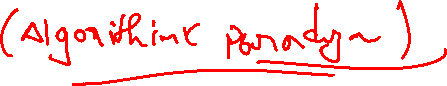 (Algorithmic paradigm)